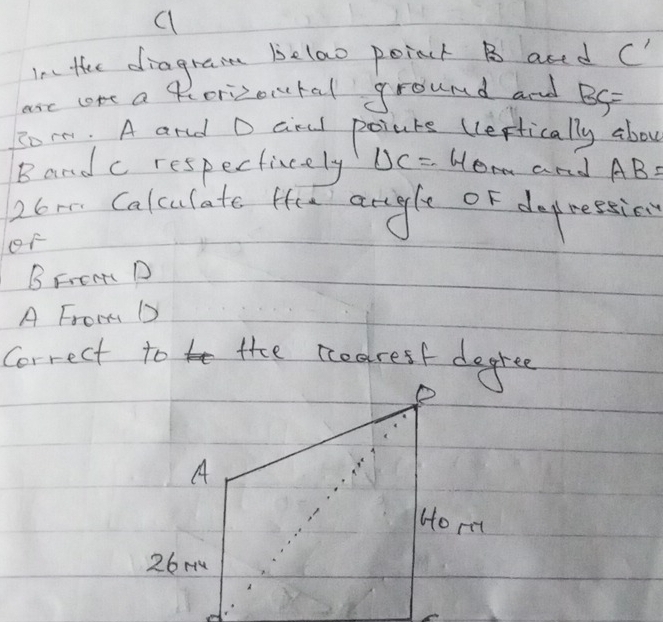 a
in the diagram below point B and C
are on a horizontal ground and BC=
30m. A and D and points vertically abov
B and C respectively DC = 40m and AB=
26m. Calculate the angle OF depression
OF
B From D
A From D
Correct to the nearest degree
D
A
40m
26m